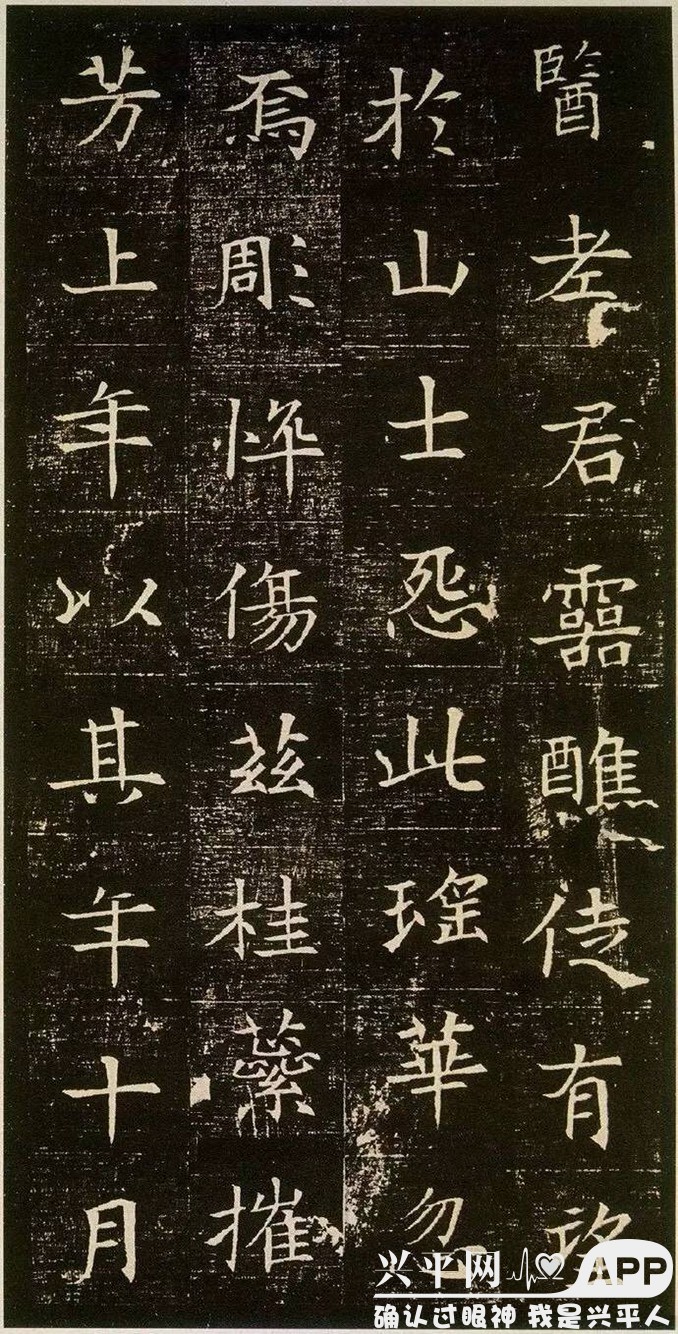 醫老君靈醮徒有望
於山士怨此瑤華忽
焉彫悴傷茲桂蘂摧
芳上年以其年十月
兴平网 APP
确认过眼神 我是兴平人